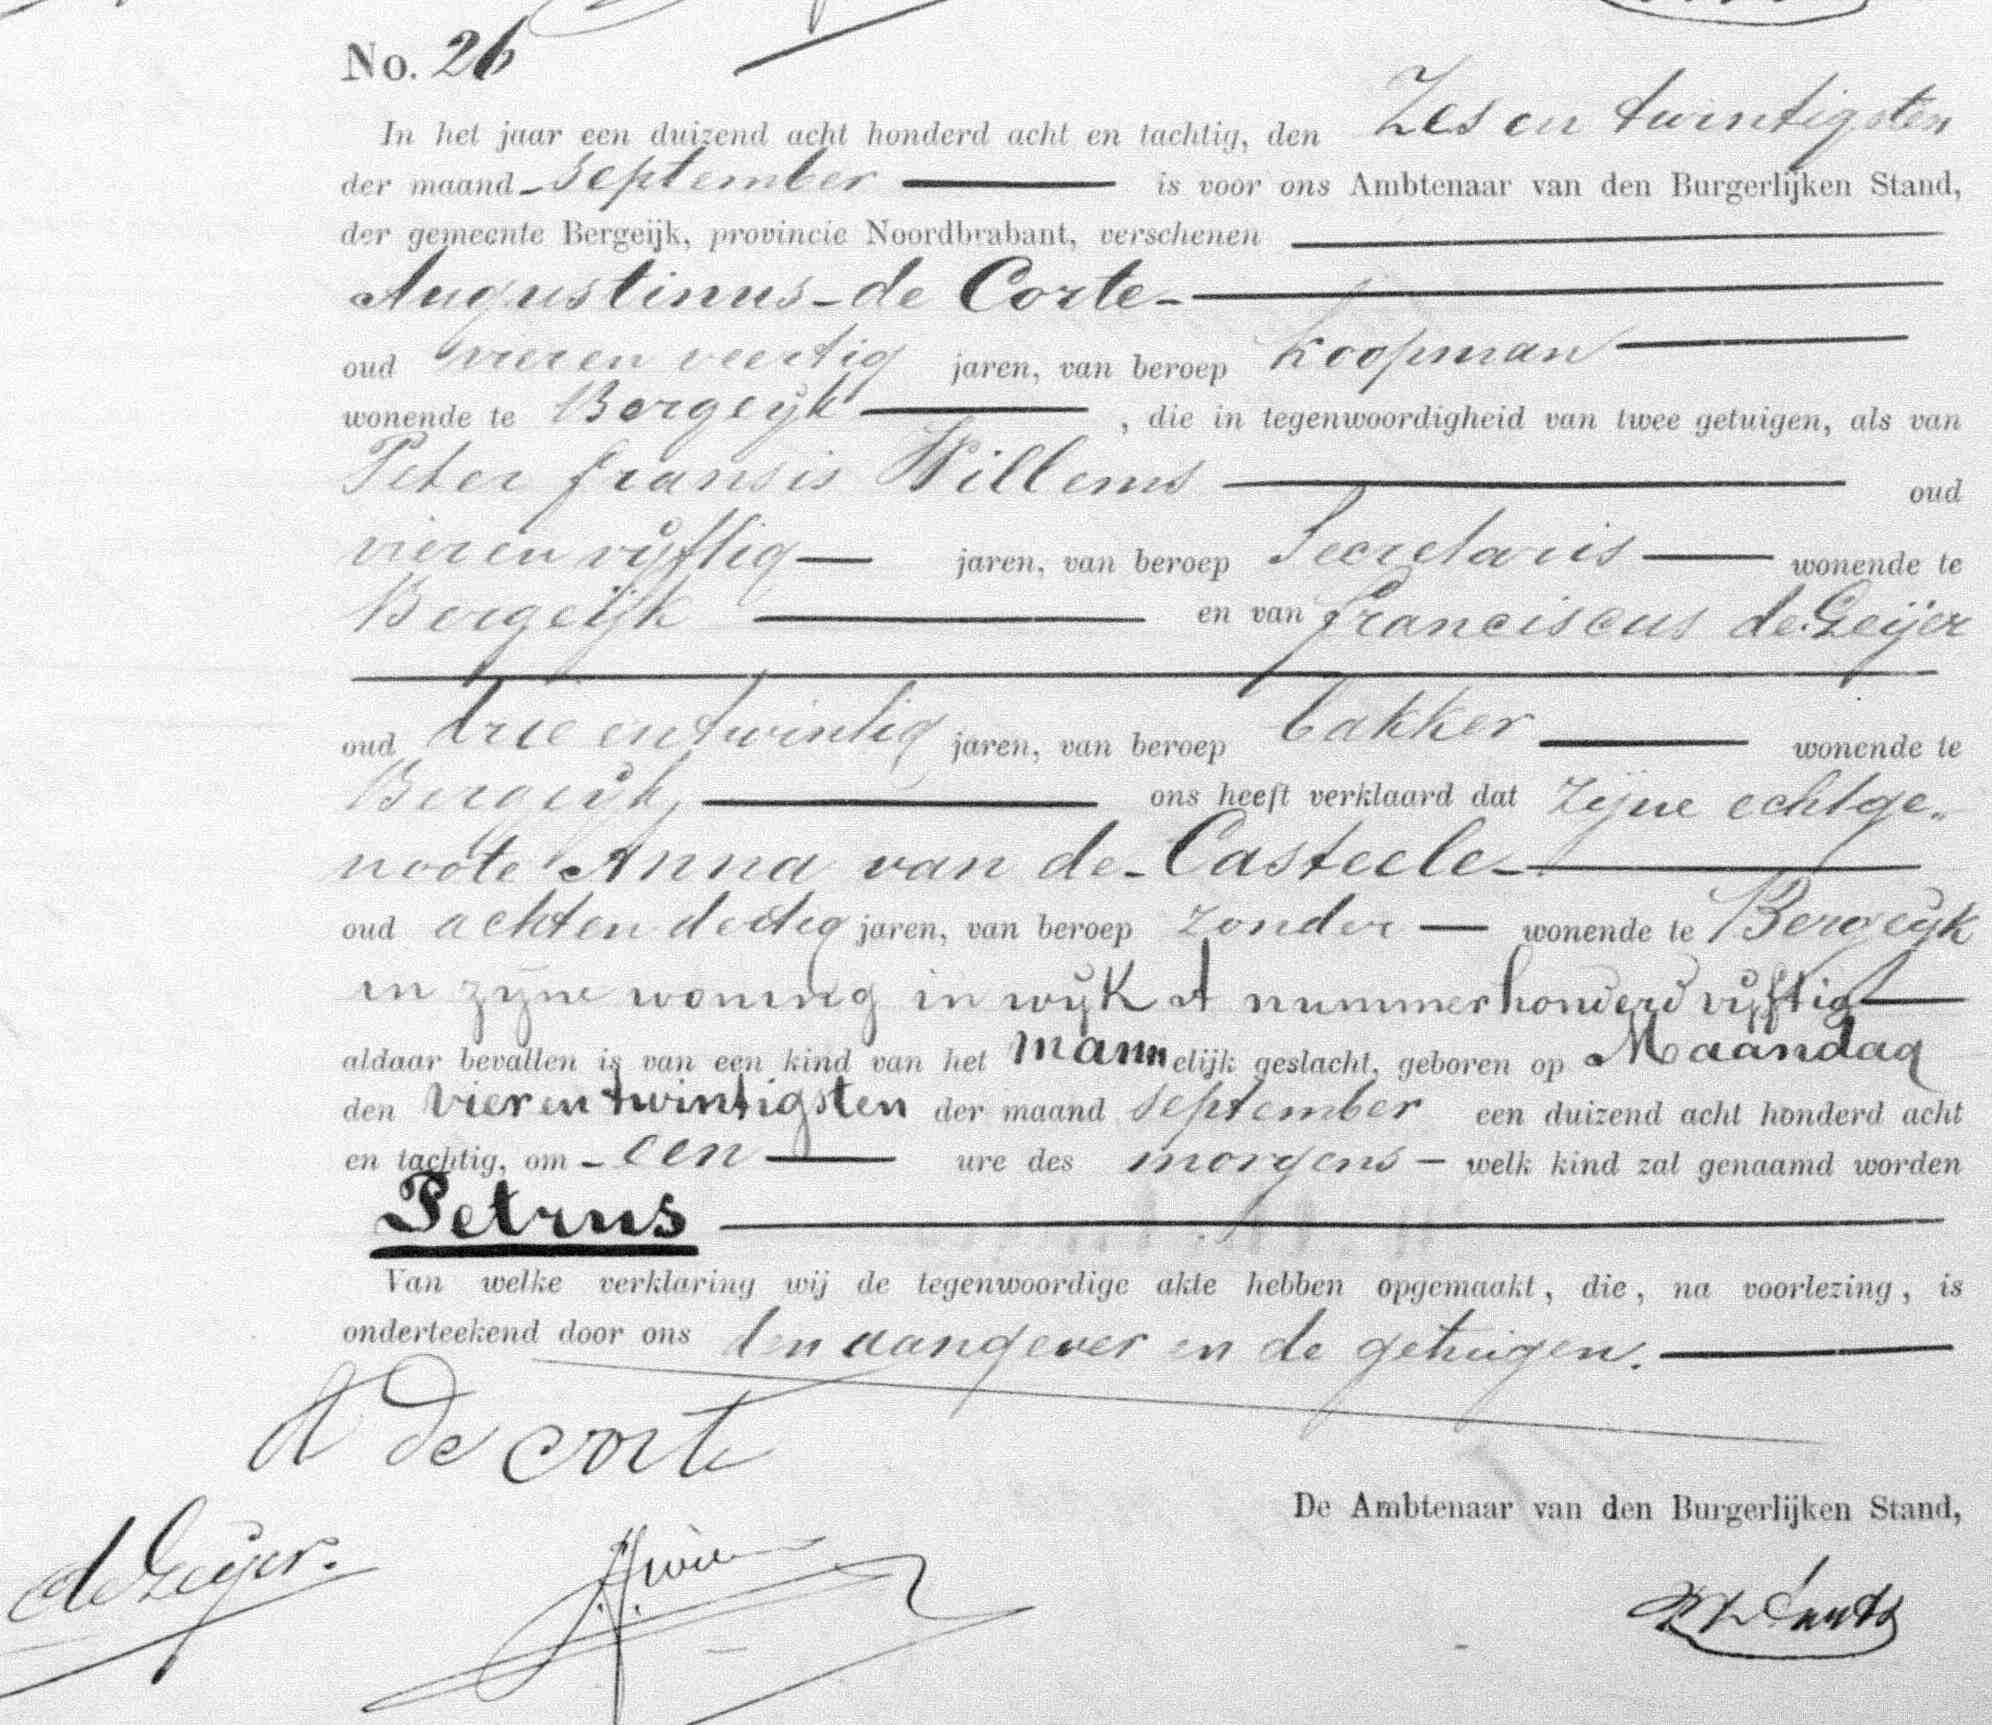 No. 26
In het jaar een duizend acht honderd acht en tachtig, den Zes en twintigsten
der maand september is voor ons Ambtenaar van den Burgerlijken Stand,
der gemeente Bergeijk, provincie Noordbrabant, verschenen
Augustinus de Corte
oud vier en veertig jaren, van beroep koopman
wonende te Bergeijk , die in tegenwoordigheid van twee getuigen, als van
Peter fransis Willems oud
vier en vijftig jaren, van beroep Secretaris wonende te
Bergeijk en van franciscus de Zeijer
oud drie en twintig jaren, van beroep bakker wonende te
Bergeijk, ons heeft verklaard dat zijne echtge„
noote Anna van de Casteele
oud achten dertig jaren, van beroep zonder wonende te Bergeijk
in zijne woning in wijk A nummer honderd vijftig
aldaar bevallen is van een kind van het mannelijk geslacht, geboren op Maandag
den vier en twintigsten der maand september een duizend acht honderd acht
en tachtig, om een ure des morgens welk kind zal genaamd worden
Petrus
Van welke verklaring wij de tegenwoordige akte hebben opgemaakt, die, na voorlezing, is
onderteekend door ons den aangever en de getuigen.
A de corte
De Ambtenaar van den Burgerlijken Stand,
de Zeijer.